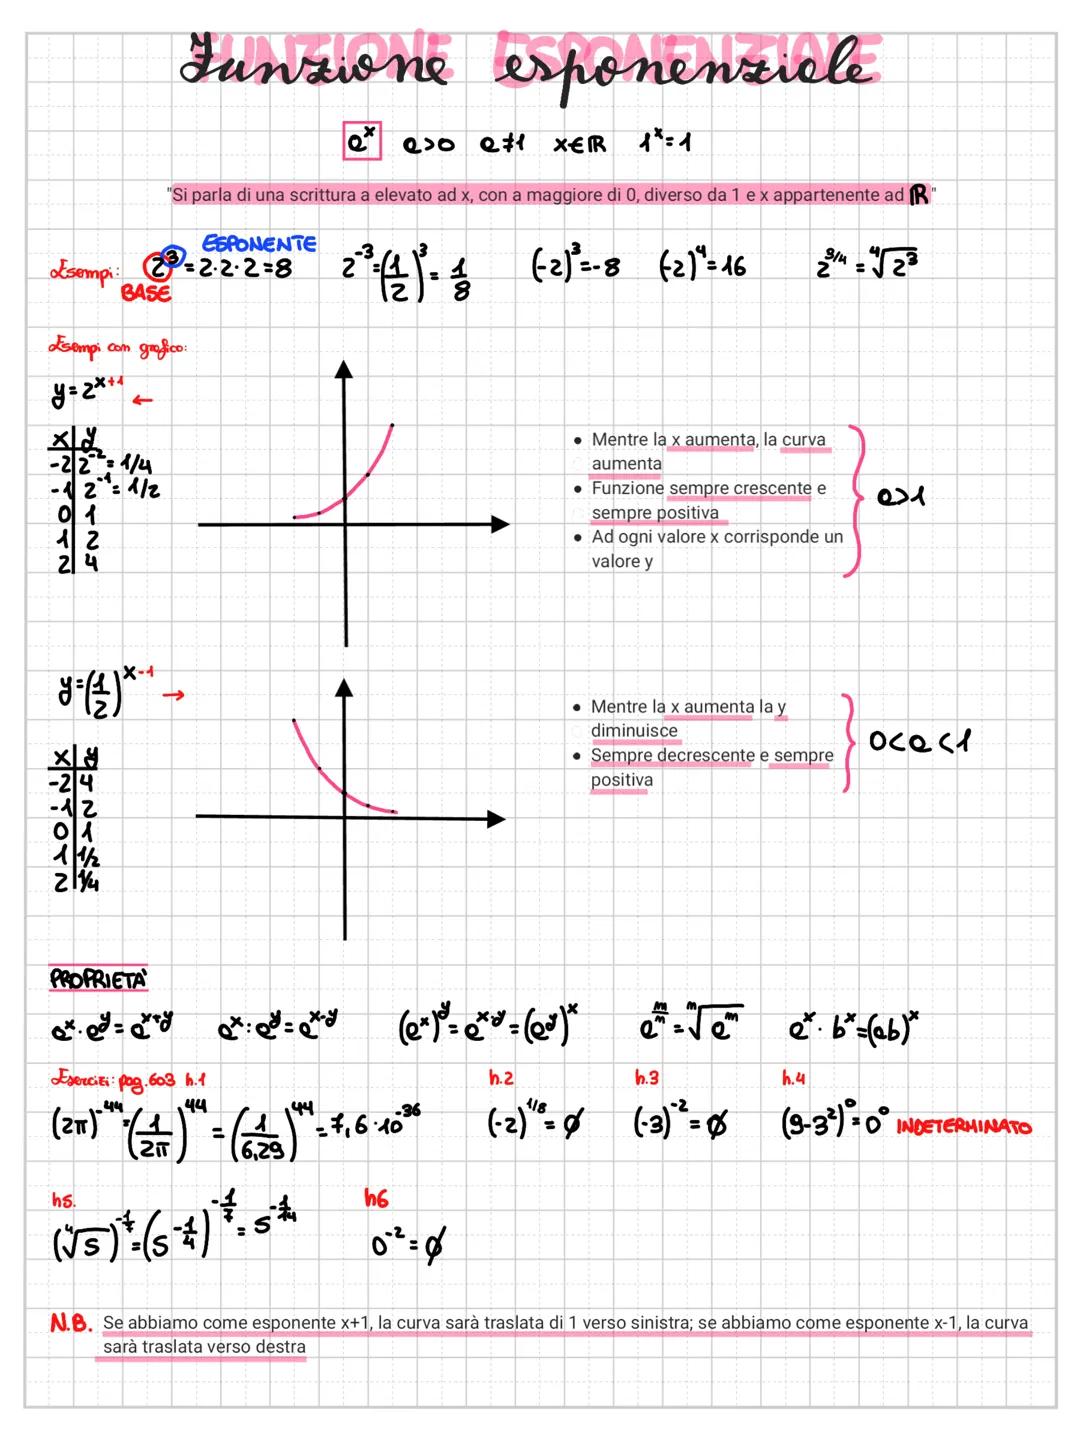 FUNZIONE ESPONENZIALE
Funzione esponenziale
a^x a>0 a≠1 x∈ℝ 1^x=1
"Si parla di una scrittura a elevato ad x, con a maggiore di 0, diverso da 1 e x appartenente ad ℝ"
ESPONENTE
Esempi: 2^3=2·2·2=8 2^-3=(1/2)^3=1/8 (-2)^3=-8 (-2)^4=16 2^3/4=⁴√2^3
BASE
Esempi con grafico:
y=2^x+1 ←
x y
-2 2^-2=1/4
-1 2^-1=1/2
0 1
1 2
2 4
• Mentre la x aumenta, la curva
aumenta
• Funzione sempre crescente e
sempre positiva
• Ad ogni valore x corrisponde un
valore y
a>1
y=(1/2)^x-1 →
x y
-2 4
-1 2
0 1
1 1/2
2 1/4
• Mentre la x aumenta la y
diminuisce
• Sempre decrescente e sempre
positiva
0<a<1
PROPRIETÀ
a^x·a^y=a^x+y a^x:a^y=a^x-y (a^x)^y=a^x·y=(a^y)^x a^m/n=ⁿ√a^m a^x·b^x=(ab)^x
Esercizi: pag.603 h.1 h.2 h.3 h.4
(2π)^-44=(1/2π)^44=(1/6,29)^44=7,6·10^-36 (-2)^1/8=∅ (-3)^-2=∅ (9-3^2)^0=0^0 INDETERMINATO
h5. h6
(⁴√5)^-1/7=(5^-1/4)^-1/7=5^-1/14 0^-2=∅
N.B. Se abbiamo come esponente x+1, la curva sarà traslata di 1 verso sinistra; se abbiamo come esponente x-1, la curva
sarà traslata verso destra